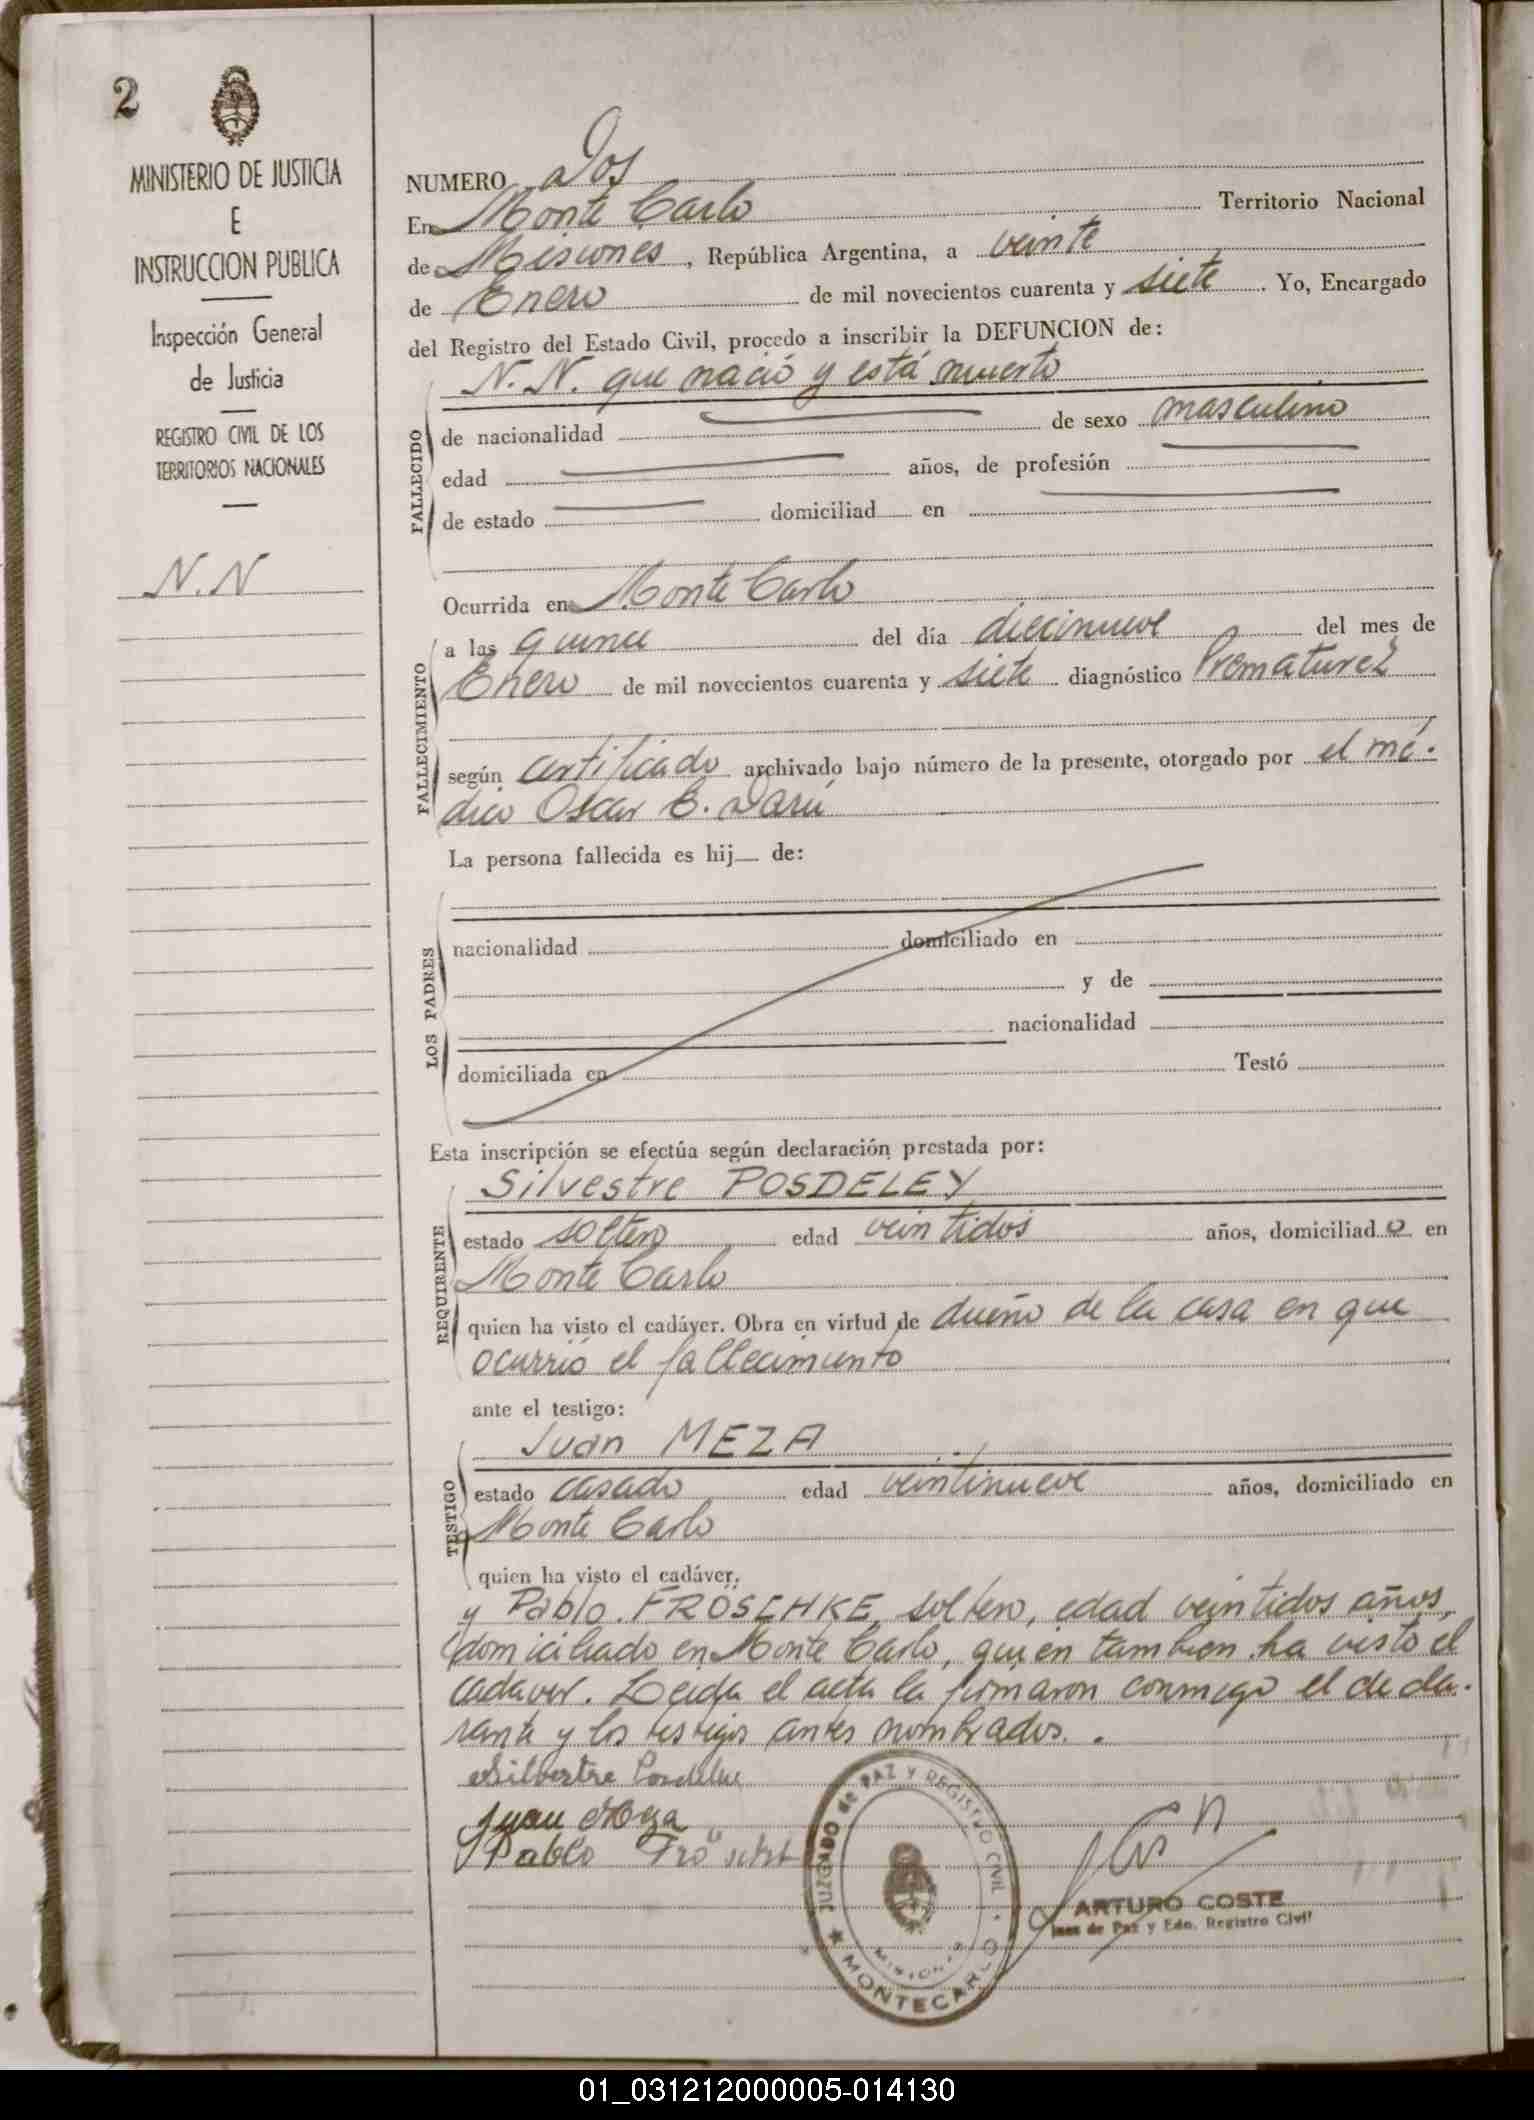 2
MINISTERIO DE JUSTICIA
E
INSTRUCCION PUBLICA
Inspección General
de Justicia
REGISTRO CIVIL DE LOS
TERRITORIOS NACIONALES
N.N
NUMERO Dos
En Monte Carlo Territorio Nacional
de Misiones, República Argentina, a veinte
de Enero de mil novecientos cuarenta y siete. Yo, Encargado
del Registro del Estado Civil, procedo a inscribir la DEFUNCION de:
FALLECIDO
N. N. que nació y está muerto
de nacionalidad de sexo masculino
edad años, de profesión
de estado domiciliad en
FALLECIMIENTO
Ocurrida en Monte Carlo
a las quince del día diecinueve del mes de
Enero de mil novecientos cuarenta y siete diagnóstico Prematurez
según certificado archivado bajo número de la presente, otorgado por el mé-
dico Oscar E. Darú
La persona fallecida es hij de:
LOS PADRES
nacionalidad domiciliado en
y de
nacionalidad
domiciliada en Testó
Esta inscripción se efectúa según declaración prestada por:
REQUIRENTE
Silvestre POSDELEY
estado soltero edad veintidos años, domiciliado en
Monte Carlo
quien ha visto el cadáver. Obra en virtud de dueño de la casa en que
ocurrió el fallecimiento
ante el testigo:
TESTIGO
Juan MEZA
estado casado edad veintinueve años, domiciliado en
Monte Carlo
quien ha visto el cadáver.
y Pablo FRÖSCHKE, soltero, edad veintidos años,
domiciliado en Monte Carlo, quien tambien ha visto el
cadaver. Leida el acta la firmaron conmigo el decla-
rante y los testigos antes nombrados.
Silvestre
Juan Meza
Pablo
JUZGADO de PAZ Y REGISTRO CIVIL
MISIONES
MONTECARLO
ARTURO COSTE
Juez de Paz y Edo. Registro Civil
01_031212000005-014130